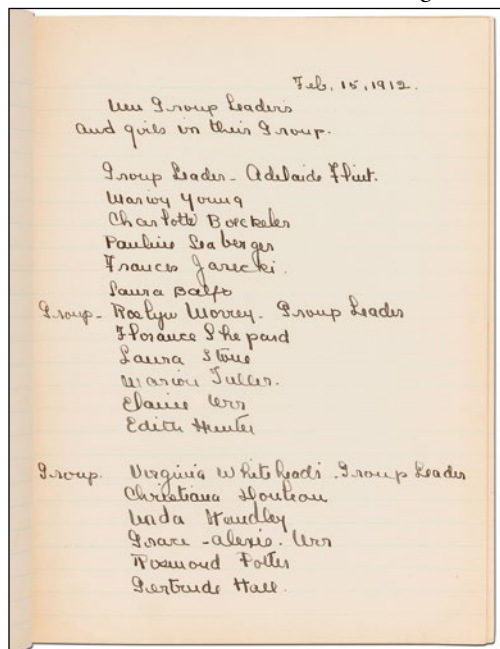 Feb, 15, 1912.
New Group Leaders
and girls in their Group.
Group Leader - Adelaide Flint.
Marion Young
Charlotte Boeckeler
Pauline Seaberger
Frances Jarecki.
Laura
Group - Roslyn Morrey. Group Leader
Florance Shepard
Laura Stone
Marion Fuller.
Elaine Urr
Edith Hunter
Group. Virginia Whiteheads. Group Leader
Christiana
Linda Handley
Grace - Alexis. Urr
Rosmond Potter
Gertrude Hall.